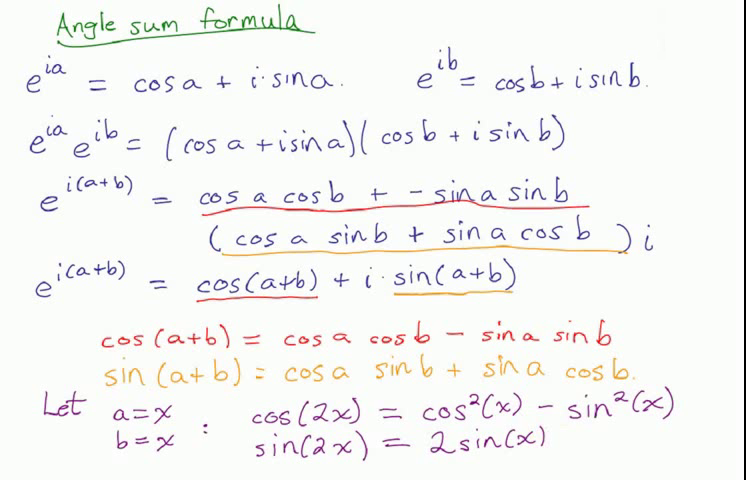 Angle sum formula
e^{ia} = cos a + i · sin a.    e^{ib} = cos b + i sin b.
e^{ia} e^{ib} = (cos a + i sin a)(cos b + i sin b)
e^{i(a+b)} = cos a cos b + - sin a sin b
(cos a sin b + sin a cos b) i
e^{i(a+b)} = cos(a+b) + i · sin(a+b)
cos (a+b) = cos a cos b - sin a sin b
sin (a+b) = cos a sin b + sin a cos b.
Let a = x : cos(2x) = cos²(x) - sin²(x)
b = x sin(2x) = 2 sin(x)